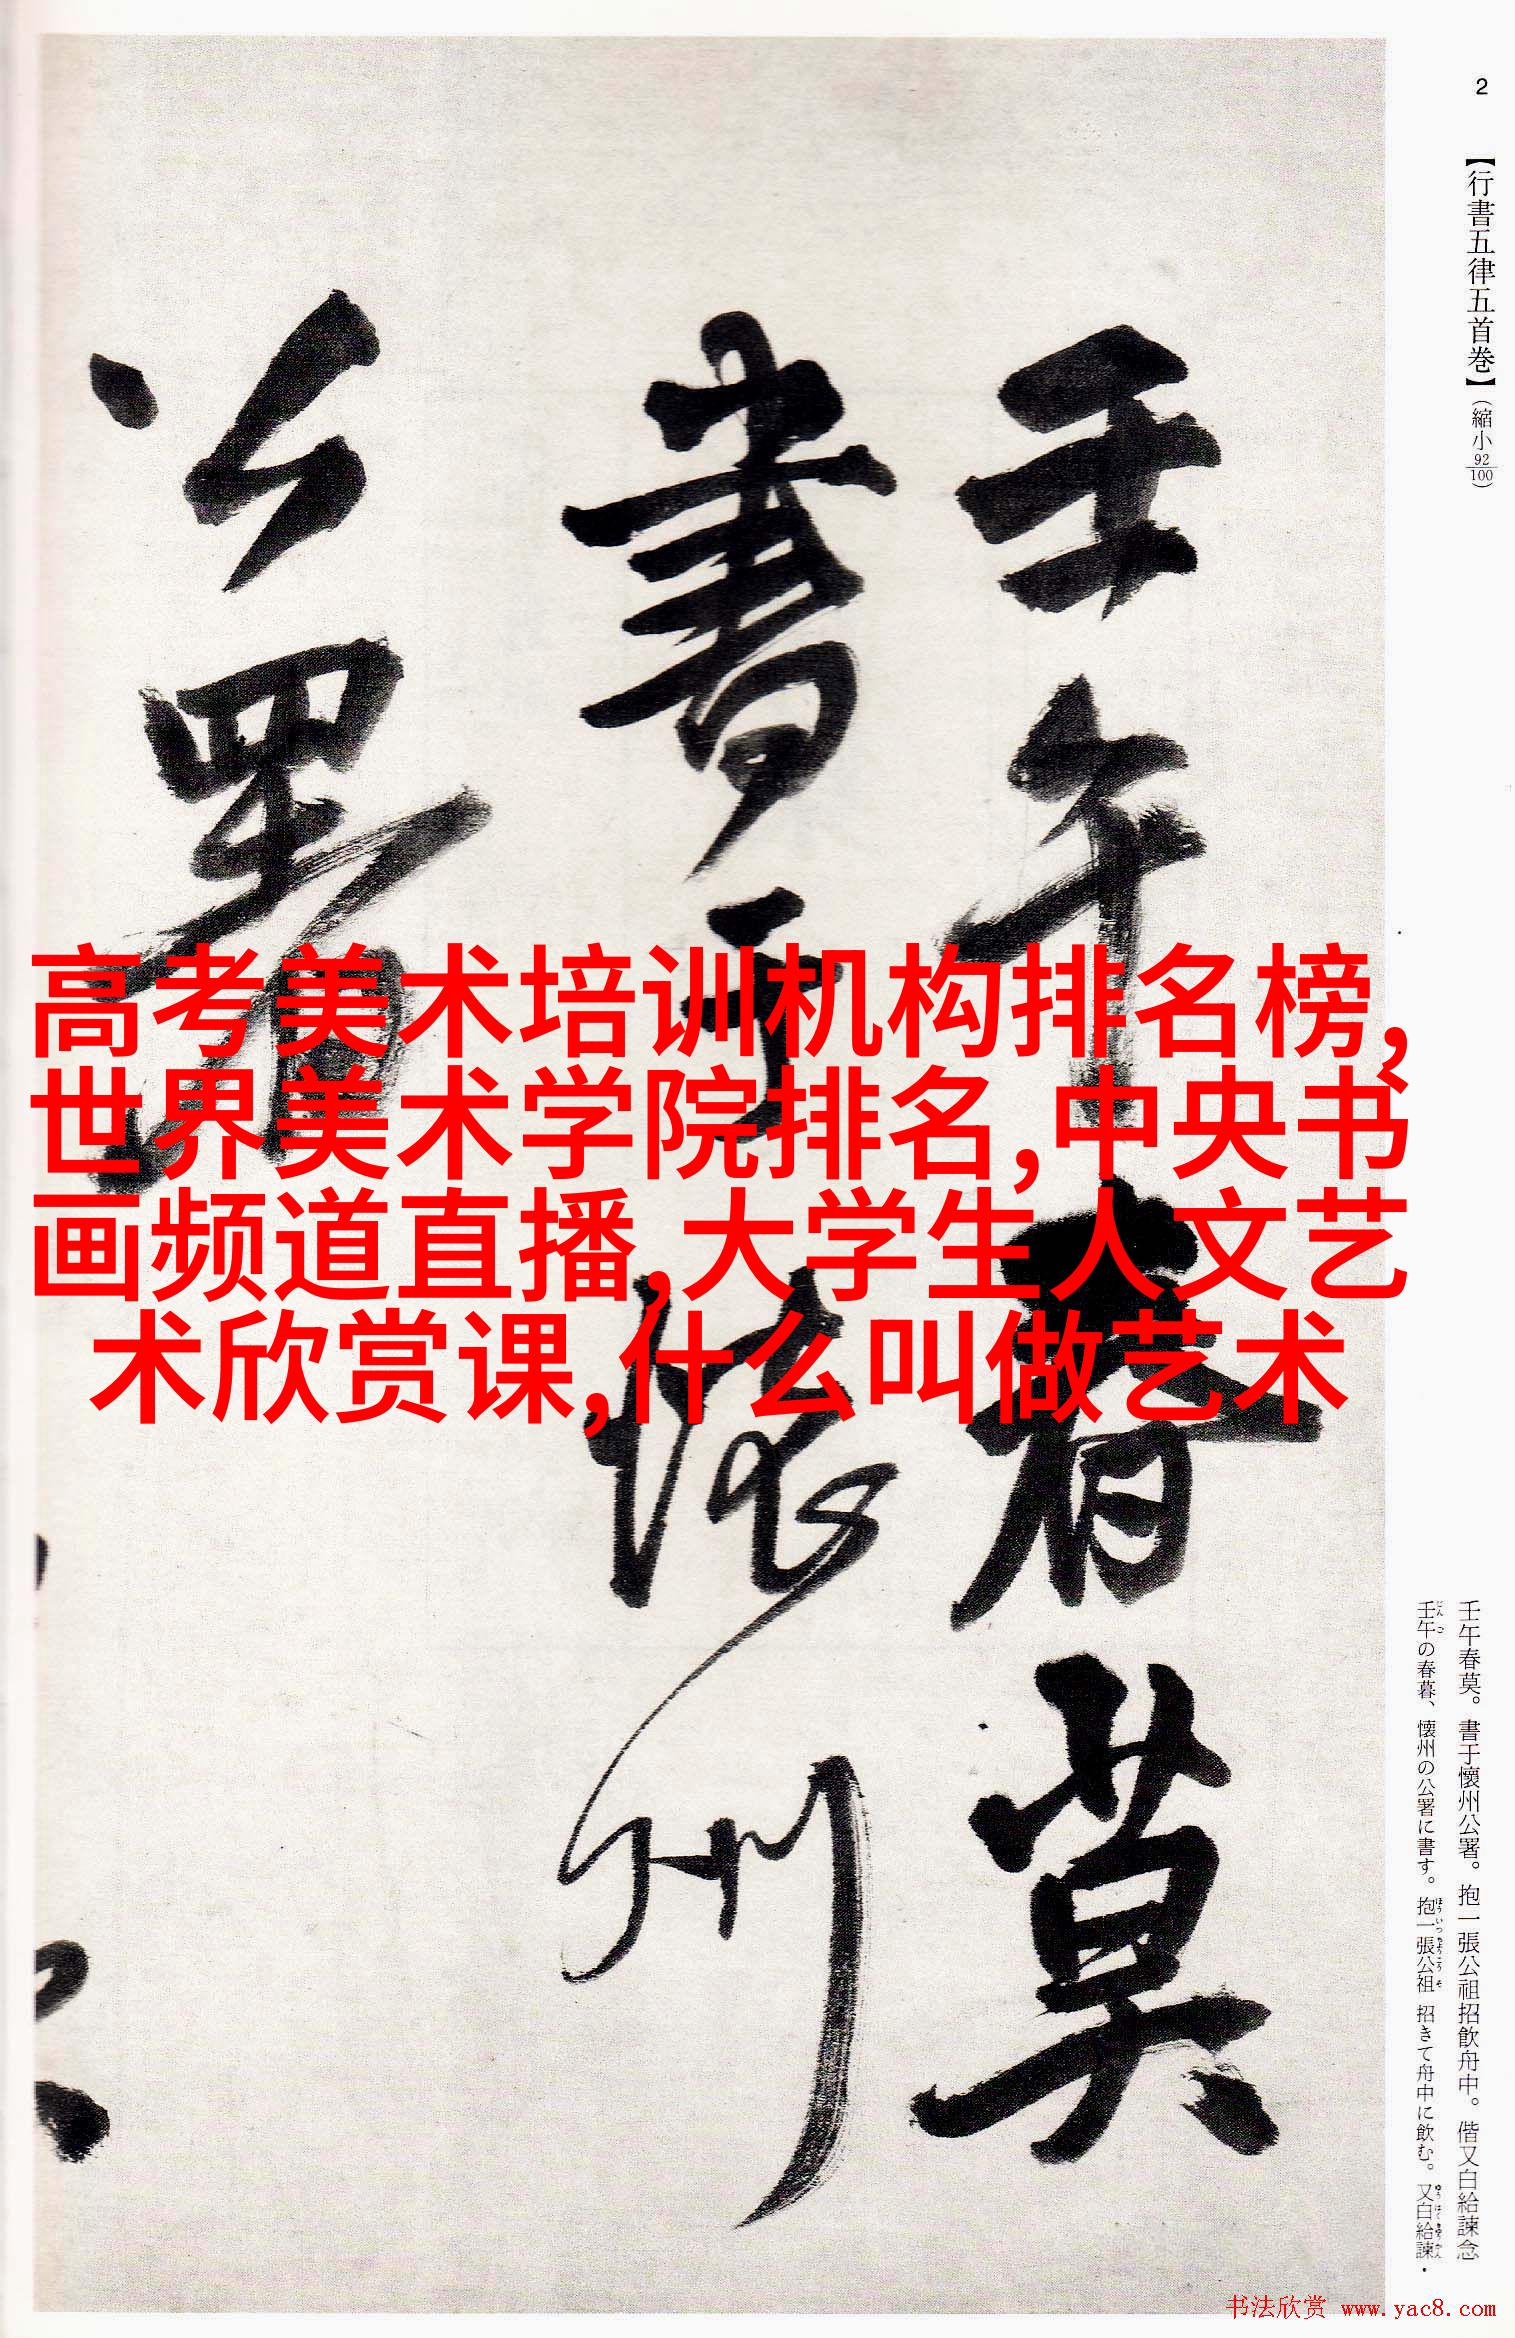 2
【行書五律五首巻】(縮小92/100)
壬午春莫
書于懷州
公署
高考美术培训机构排名榜,
世界美术学院排名,中央书
画频道直播,大学生人文艺
术欣赏课,什么叫做艺术
壬午春莫。書于懷州公署。抱一張公祖招飲舟中。偕又白給諫念
壬午の春暮、懐州の公署に書す。抱一張公祖 招きて舟中に飲む。又白給諫・
书法欣赏 www.yac8.com